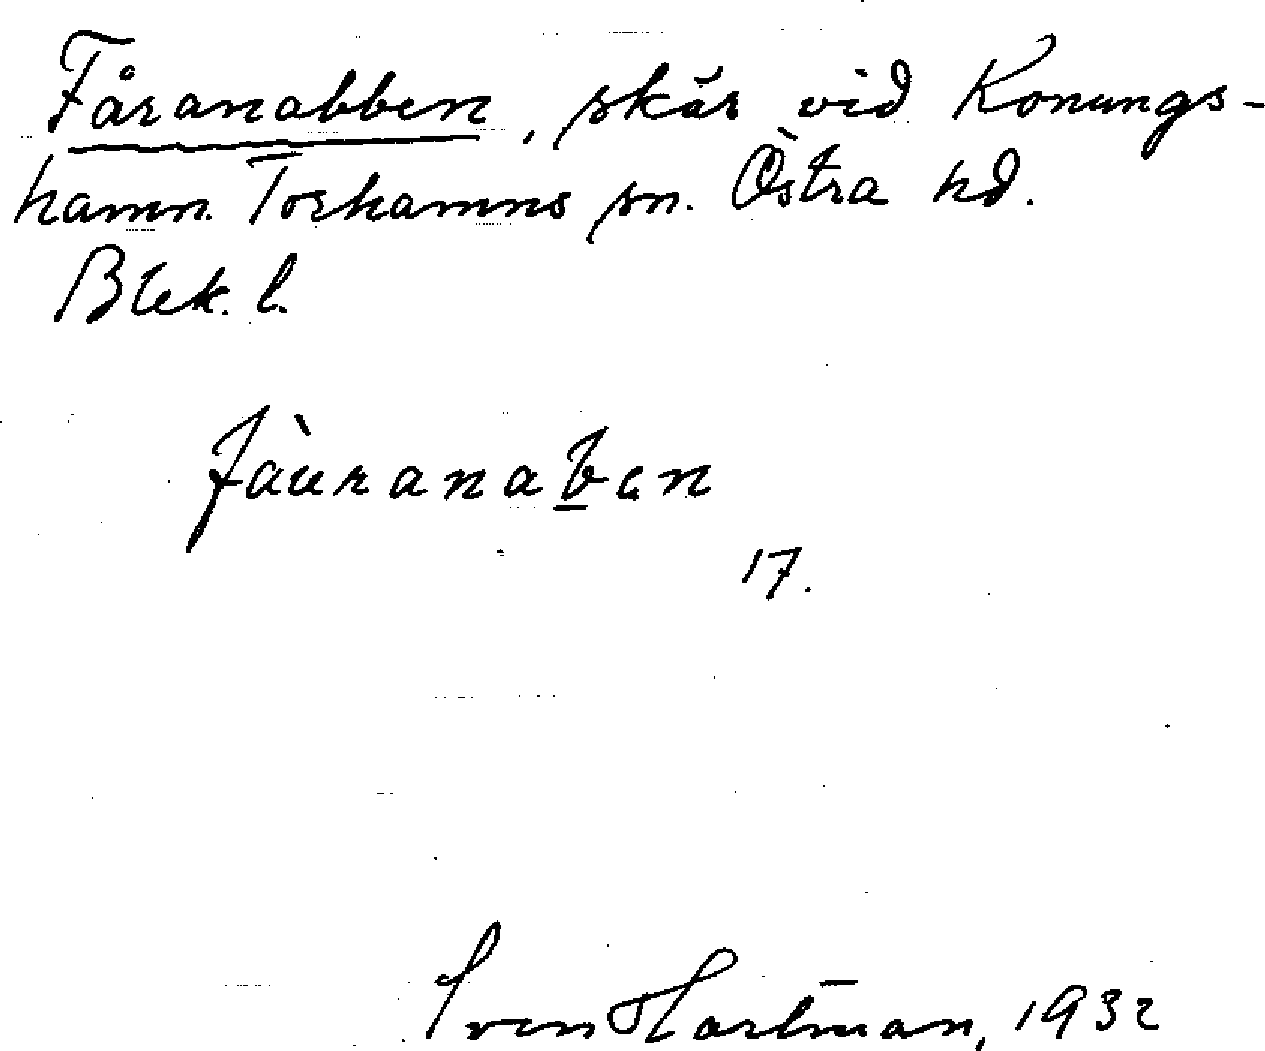 Fåranabben, skär vid Konungs-
hamn. Torhamns sn. Östra hd.
Blek. l.
fàuranaben
17.
Sven Hartman, 1932